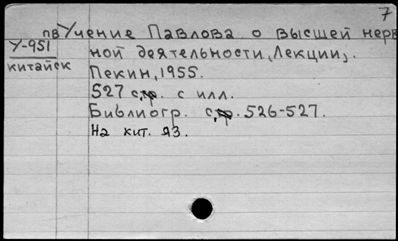 7
пв Учение Павлова о высшей нерв
У-951 ной деятельности, Лекции,.
китайск
Пекин, 1955.
527 с. с илл.
Библиогр. с. 526-527.
На кит. яз.